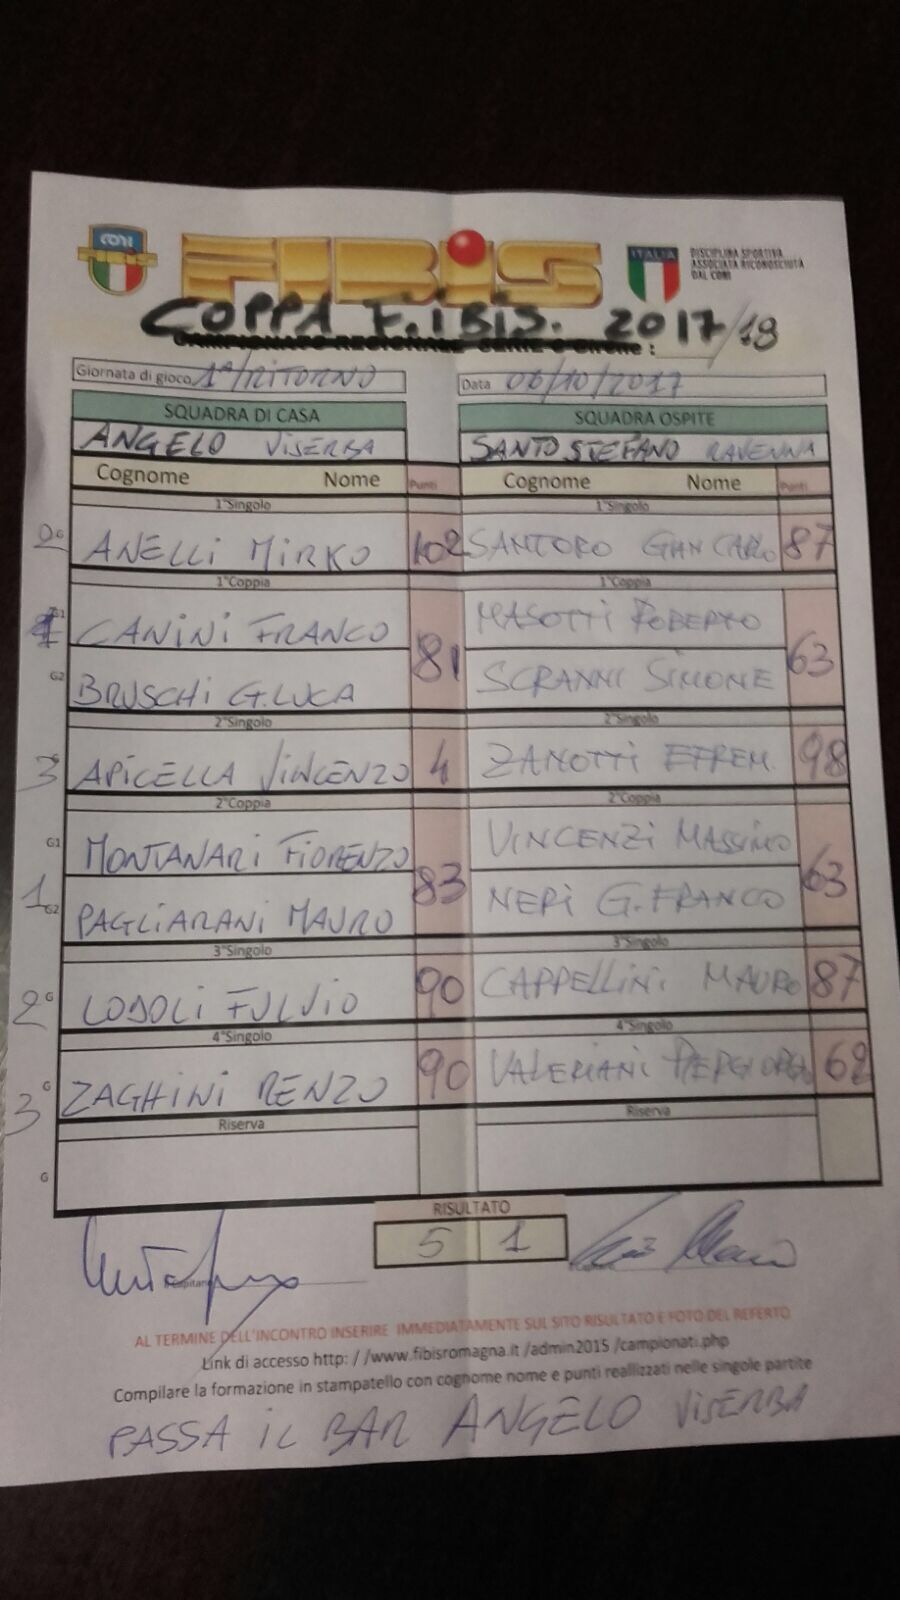 CONI
FIBIS
ITALIA
DISCIPLINA SPORTIVA
ASSOCIATA RICONOSCIUTA
DAL CONI
COPPA F.IBIS. 2017/18
CAMPIONATO REGIONALE SERIE C Girone :
Giornata di gioco 1ª/RITORNO Data 06/10/2017
SQUADRA DI CASA SQUADRA OSPITE
ANGELO VISERBA SANTO STEFANO RAVENNA
Cognome Nome Punti Cognome Nome Punti
1°Singolo 1°Singolo
2 G ANELLI MIRKO 102 SANTORO GIANCARLO 87
1°Coppia 1°Coppia
G1 CANINI FRANCO MASOTTI ROBERTO
81 63
G2 BRUSCHI G.LUCA SCRANNI SIMONE
2°Singolo 2°Singolo
3° APICELLA VINCENZO 4 ZANOTTI EFREM. 98
2°Coppia 2°Coppia
G1 MONTANARI FIORENZO VINCENZI MASSIMO
83 63
1 G2 PAGLIARANI MAURO NERI G.FRANCO
3°Singolo 3°Singolo
2 G LODOLI FULVIO 90 CAPPELLINI MAURO 87
4°Singolo 4°Singolo
3 G ZAGHINI RENZO 90 VALERIANI PIERGIORGIO 62
Riserva Riserva
G
RISULTATO
5 1
Il Capitano
AL TERMINE DELL'INCONTRO INSERIRE IMMEDIATAMENTE SUL SITO RISULTATO E FOTO DEL REFERTO
Link di accesso http: / /www.fibisromagna.it /admin2015 /campionati.php
Compilare la formazione in stampatello con cognome nome e punti reallizzati nelle singole partite
PASSA IL BAR ANGELO VISERBA